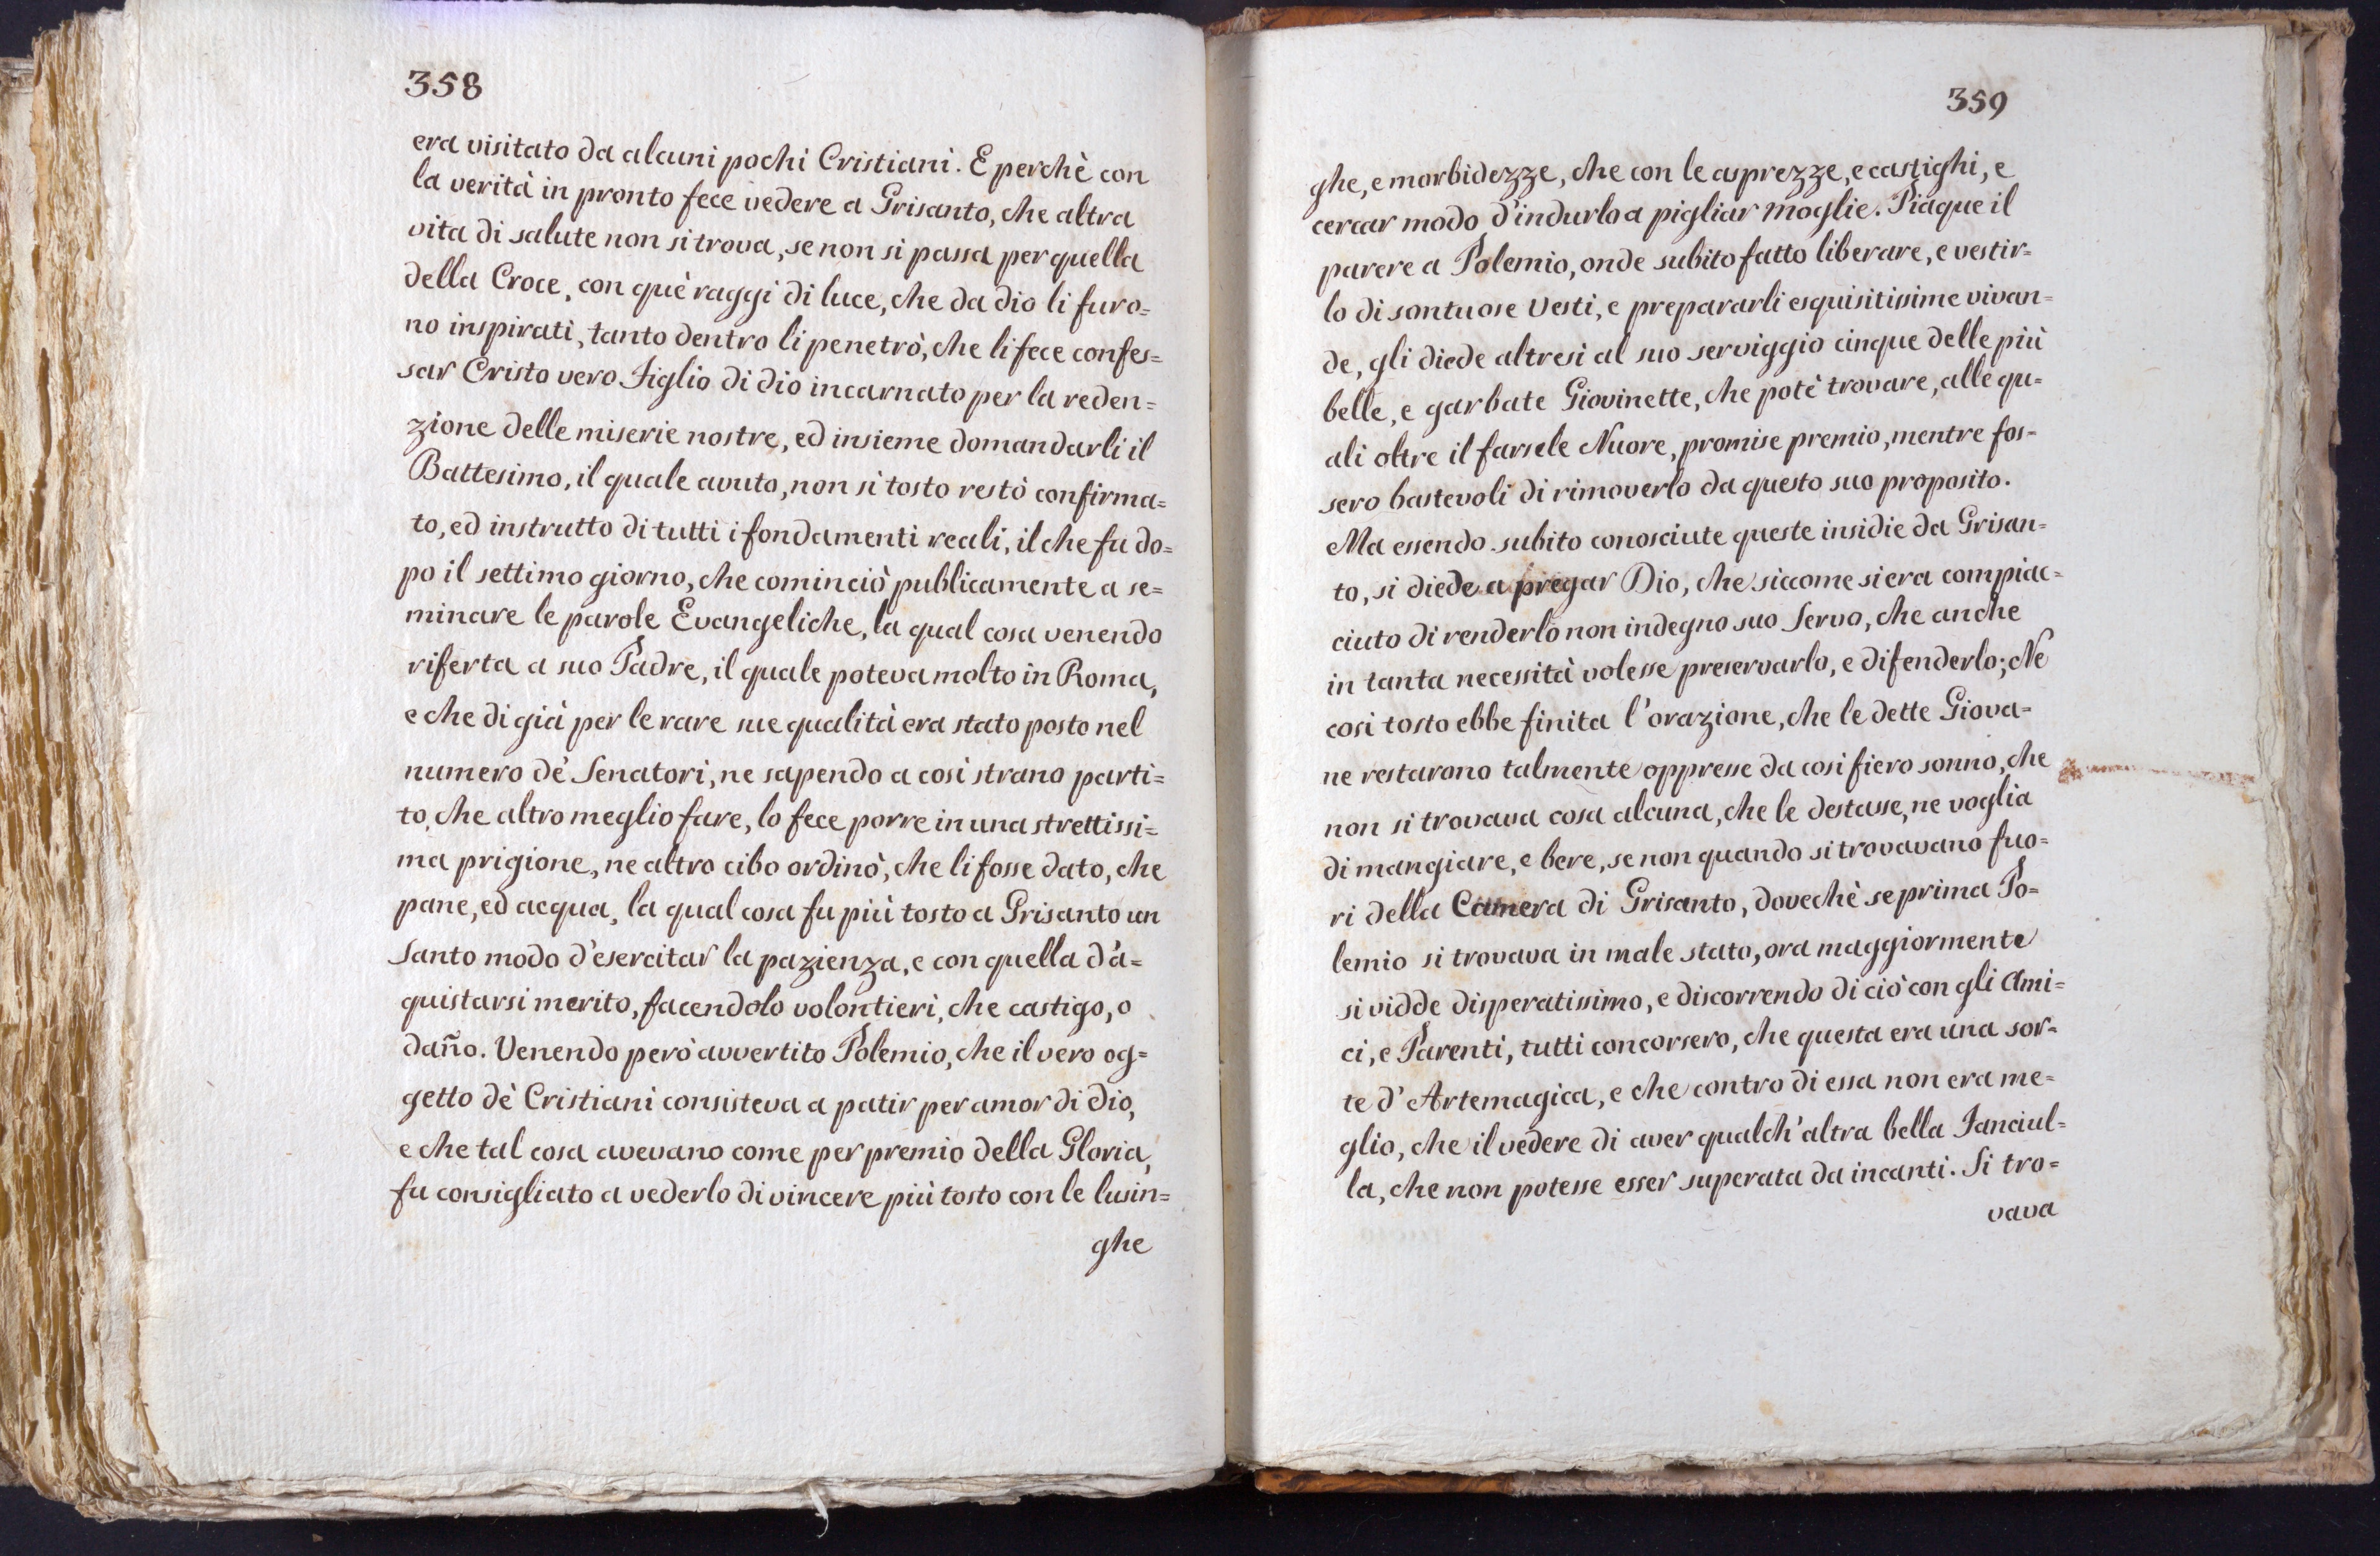 358
era visitato da alcuni pochi Cristiani. E perchè con
la verità in pronto fece vedere a Grisanto, che altra
vita di salute non si trova, se non si passa per quella
della Croce, con què raggi di luce, che da dio li furo=
no inspirati, tanto dentro li penetrò, che li fece confes=
sar Cristo vero Figlio di dio incarnato per la reden=
zione delle miserie nostre, ed insieme domandarli il
Battesimo, il quale avuto, non sì tosto restò confirma=
to, ed instrutto di tutti i fondamenti reali, il che fu do=
po il settimo giorno, che cominciò publicamente a se=
minare le parole Evangeliche, la qual cosa venendo
riferta a suo Padre, il quale poteva molto in Roma,
e che di già per le rare sue qualità era stato posto nel
numero de' Senatori, ne sapendo a così strano parti=
to, che altro meglio fare, lo fece porre in una strettissi=
ma prigione, ne altro cibo ordinò, che li fosse dato, che
pane, ed acqua, la qual cosa fu più tosto a Grisanto un
Santo modo d'esercitar la pazienza, e con quella d'a=
quistarsi merito, facendolo volontieri, che castigo, o
dañо. Venendo però avvertito Polemio, che il vero og=
getto dè Cristiani consisteva a patir per amor di dio,
e che tal cosa avevano come per premio della Gloria,
fu consigliato a vederlo di vincere più tosto con le lusin=
ghe
359
ghe, e morbidezze, che con le asprezze, e castighi, e
cercar modo d'indurlo a pigliar Moglie. Piaque il
parere a Polemio, onde subito fatto liberare, e vestir=
lo di sontuose Vesti, e prepararli esquisitissime vivan=
de, gli diede altresi al suo serviggio cinque delle più
belle, e garbate Giovinette, che potè trovare, alle qu=
ali oltre il farsele Nuore, promise premio, mentre fos=
sero bastevoli di rimoverlo da questo suo proposito.
Ma essendo subito conosciute queste insidie da Grisan=
to, si diede a pregar Dio, che siccome si era compiac=
ciuto di renderlo non indegno suo Servo, che anche
in tanta necessità volesse preservarlo, e difenderlo; Ne
così tosto ebbe finita l'orazione, che le dette Giova=
ne restarono talmente oppresse da così fiero sonno, che
non si trovava cosa alcuna, che le destasse, ne voglia
di mangiare, e bere, se non quando si trovavano fuo=
ri della Camera di Grisanto, dovechè se prima Po=
lemio si trovava in male stato, ora maggiormente
si vidde disperatissimo, e discorrendo di ciò con gli Ami=
ci, e Parenti, tutti concorsero, che questa era una sor=
te d'Artemagica, e che contro di essa non era me=
glio, che il vedere di aver qualch'altra bella Fanciul=
la, che non potesse esser superata da incanti. Si tro=
vava